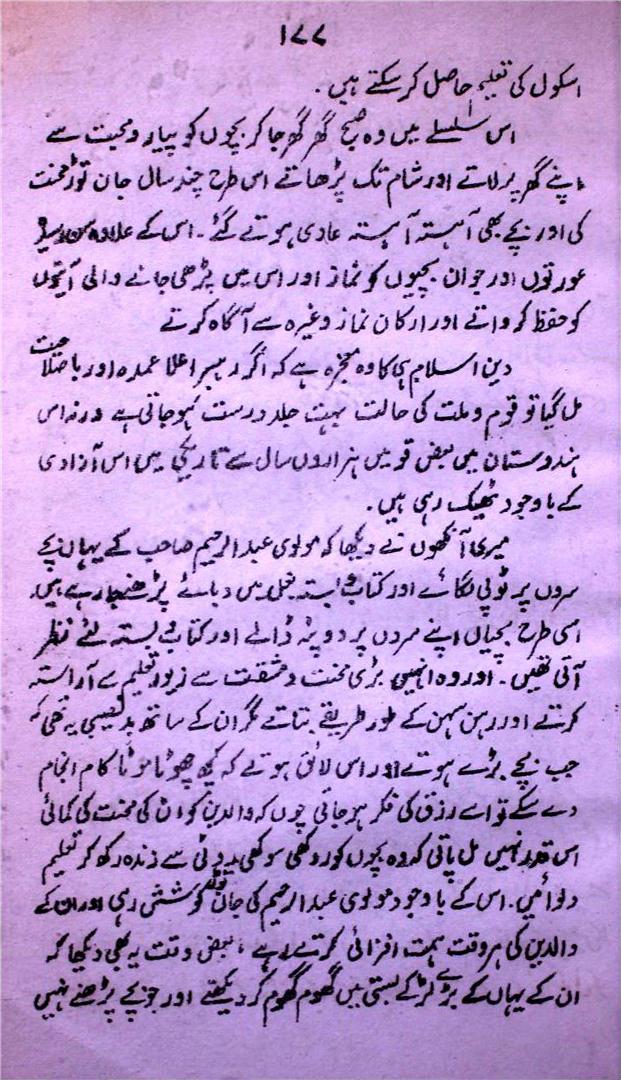 ۱۷۷
اسکول کی تعلیم حاصل کر سکتے ہیں۔
اس سلسلے میں وہ صبح گھر گھر جا کر بچوں کو پیار و محبت سے
اپنے گھر پر لاتے اور شام تک پڑھاتے اسی طرح چند سال جان توڑ محنت
کی اور بچے بھی آہستہ آہستہ عادی ہوتے گئے۔ اس کے علاوہ
عورتوں اور جوان بچیوں کو نماز اور اس میں پڑھی جانے والی آیتوں
کو حفظ کرواتے اور ارکان نماز وغیرہ سے آگاہ کرتے
دین اسلام ہی کا وہ معجزہ ہے کہ اگر رہبر اعلا عمدہ اور باصلاحیت
مل گیا تو قوم و ملت کی حالت بہت جلد درست ہو جاتی ہے ورنہ اس
ہندوستان میں بعض قومیں ہزاروں سال سے تاریکی میں اس آزادی
کے باوجود بھٹک رہی ہیں۔
میری آنکھوں نے دیکھا کہ مولوی عبدالرحیم صاحب کے یہاں بچے
سروں پر ٹوپی لگائے اور کتاب و بستہ بغل میں دبائے پڑھنے جا رہے ہیں۔
اسی طرح بچیاں اپنے سروں پر دوپٹہ ڈالے اور کتاب و بستہ لئے نظر
آتی تھیں۔ اور وہ انہیں بڑی محنت و مشقت سے زیور تعلیم سے آراستہ
کرتے اور رہن سہن کے طور طریقے بتاتے مگر ان کے ساتھ بدنصیبی یہ تھی کہ
جب بچے بڑے ہوتے اور اس لائق ہوتے کہ کچھ چھوٹا موٹا کام انجام
دے سکے تو اسے رزق کی فکر ہو جاتی چوں کہ والدین کو ان کی محنت کی کمائی
اس قدر نہیں مل پاتی کہ وہ بچوں کو روکھی سوکھی روٹی سے زندہ رکھ کر تعلیم
دلوائیں۔ اس کے باوجود مولوی عبدالرحیم کی جان توڑ کوشش رہی اور ان کے
والدین کی ہر وقت ہمت افزائی کرتے رہے، بعض وقت یہ بھی دیکھا کہ
ان کے یہاں کے بڑے لڑکے بستی میں گھوم گھوم کر دیکھتے اور جو بچے پڑھنے نہیں